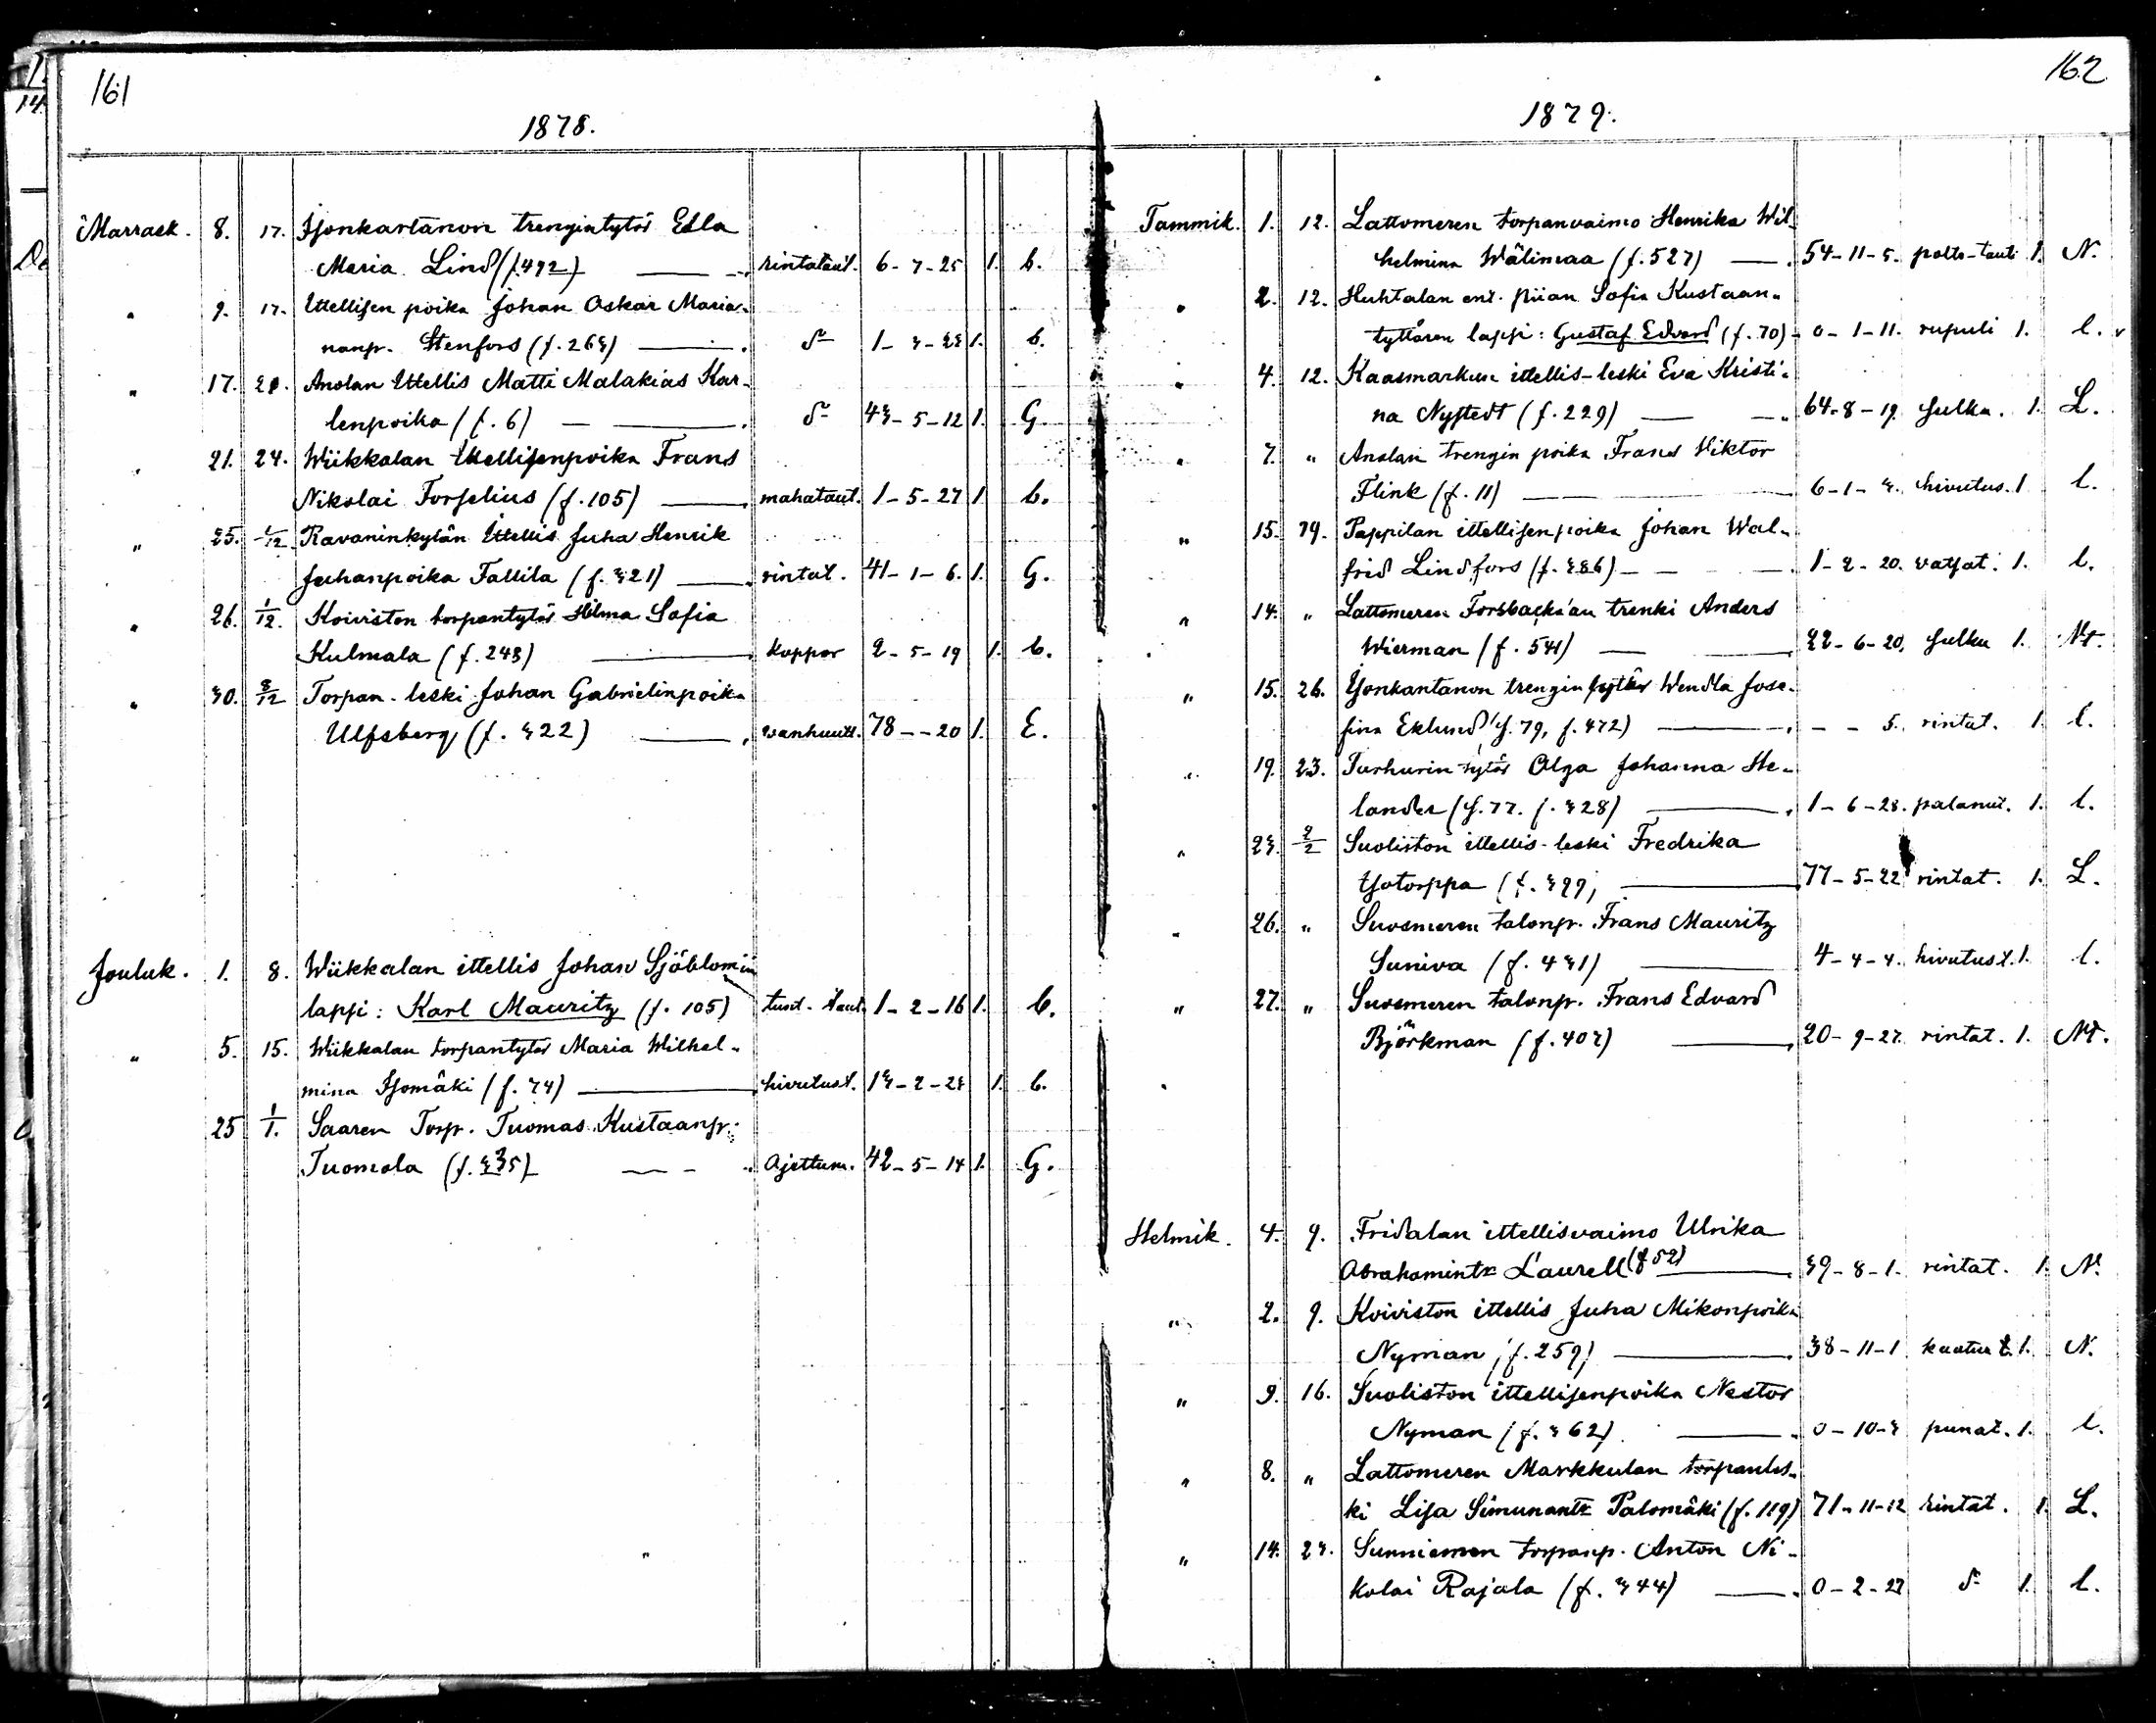 161
1878.
Marrask. 8. 17. Isonkartanon trengintytör Edla
Maria Lind (f. 492) rintataut. 6-7-25 1. b.
" 9. 17. Ittellisen poika Johan Oskar Maria-
nanp. Stenfors (f. 263) d:o 1-3-23 1. b.
" 17. Anolan Ittellis Matti Malakias Kar-
lenpoika (f. 6) d:o 43-5-12 1. G.
" 21. 24. Wiikkalan Ittellisenpoika Frans
Nikolai Forselius (f. 105) mahataut. 1-5-27 1. b.
" 25. 1/12 Ravaninkylän Ittellis Juha Henrik
Juhanpoika Tallila (f. 321) rintat. 41-1-6. 1. G.
" 26. 1/12. Koiviston torpantytör Hilma Sofia
Kulmala (f. 243) koppor 2-5-19 1. b.
" 30. 8/12 Torpan-leski Johan Gabrielinpoika
Ulfsberg (f. 322) wanhuutt. 78--20 1. E.
Jouluk. 1. 8. Wiikkalan ittellis Johan Sjöblomin
lapsi: Karl Mauritz (f. 105) taut. 1-2-16 1. b.
" 5. 15. Wiikkalan torpantytör Maria Wilhel-
mina Isomäki (f. 74) hivutust. 13-2-23 1. b.
25 1/1. Saaren Torp. Tuomas Kustaanp.
Tuomola (f. 335) Ajettum. 42-5-14 1. G.
162
1879.
Tammik. 1. 12. Lattomeren torpanvaimo Henrika Wil-
helmina Wälimaa (f. 527) 54-11-5. poltto-tauti 1. N.
" 2. 12. Huhtalan ent. piian Sofia Kustaan-
tyttären lapsi: Gustaf Edvard (f. 70) 0-1-11. rupuli 1. l.
" 4. 12. Kaasmarkun ittellis-leski Eva Kristi-
na Nystedt (f. 229) 64-8-19. sulku. 1. L.
" 7. " Anolan trengin poika Frans Viktor
Flink (f. 11) 6-1-3. hivutus. 1 l.
" 15. 19. Pappilan ittellisenpoika Johan Wal-
frid Lindfors (f. 386) 1-2-20. vatsat. 1. l.
" 14. " Lattomeren Forsbacka'an trenki Anders
Wierman (f. 541) 22-6-20. sulku 1. Nt.
" 15. 26. Isonkantanon trengin tytär Wendla Jose-
fina Eklund (f. 79, f. 472) - - 5. rintat. 1. l.
" 19. 23. Turhurin tytär Olga Johanna He-
lander (f. 77. f. 328) 1-6-28. palanut. 1. l.
" 23. 2/2 Suoliston ittellis-leski Fredrika
Isotorppa (f. 399) 77-5-22 rintat. 1. L.
" 26. " Suosmeren talonp. Frans Mauritz
Suniva (f. 431) 4-4-4. hivutust. 1. l.
" 27. " Suosmeren talonp. Frans Edvard
Björkman (f. 407) 20-9-27. rintat. 1. Nt.
Helmik. 4. 9. Fridalan ittellisvaimo Ulrika
Abrahamintr Laurell (f 52) 39-8-1. rintat. 1. N.
" 2. 9. Koiviston ittellis Juha Mikonpoika
Nyman (f. 259) 38-11-1 kaatut. 1. N.
" 9. 16. Suoliston ittellisenpoika Nestor
Nyman (f. 362) 0-10-3 punat. 1. l.
" 8. " Lattomeren Markkulan torpanles-
ki Lisa Simunantr Palomäki (f. 119) 71-11-12 rintat. 1. L.
" 14. 23. Sunniemen torpanp. Anton Ni-
kolai Rajala (f. 344) 0-2-27 d:o 1. l.